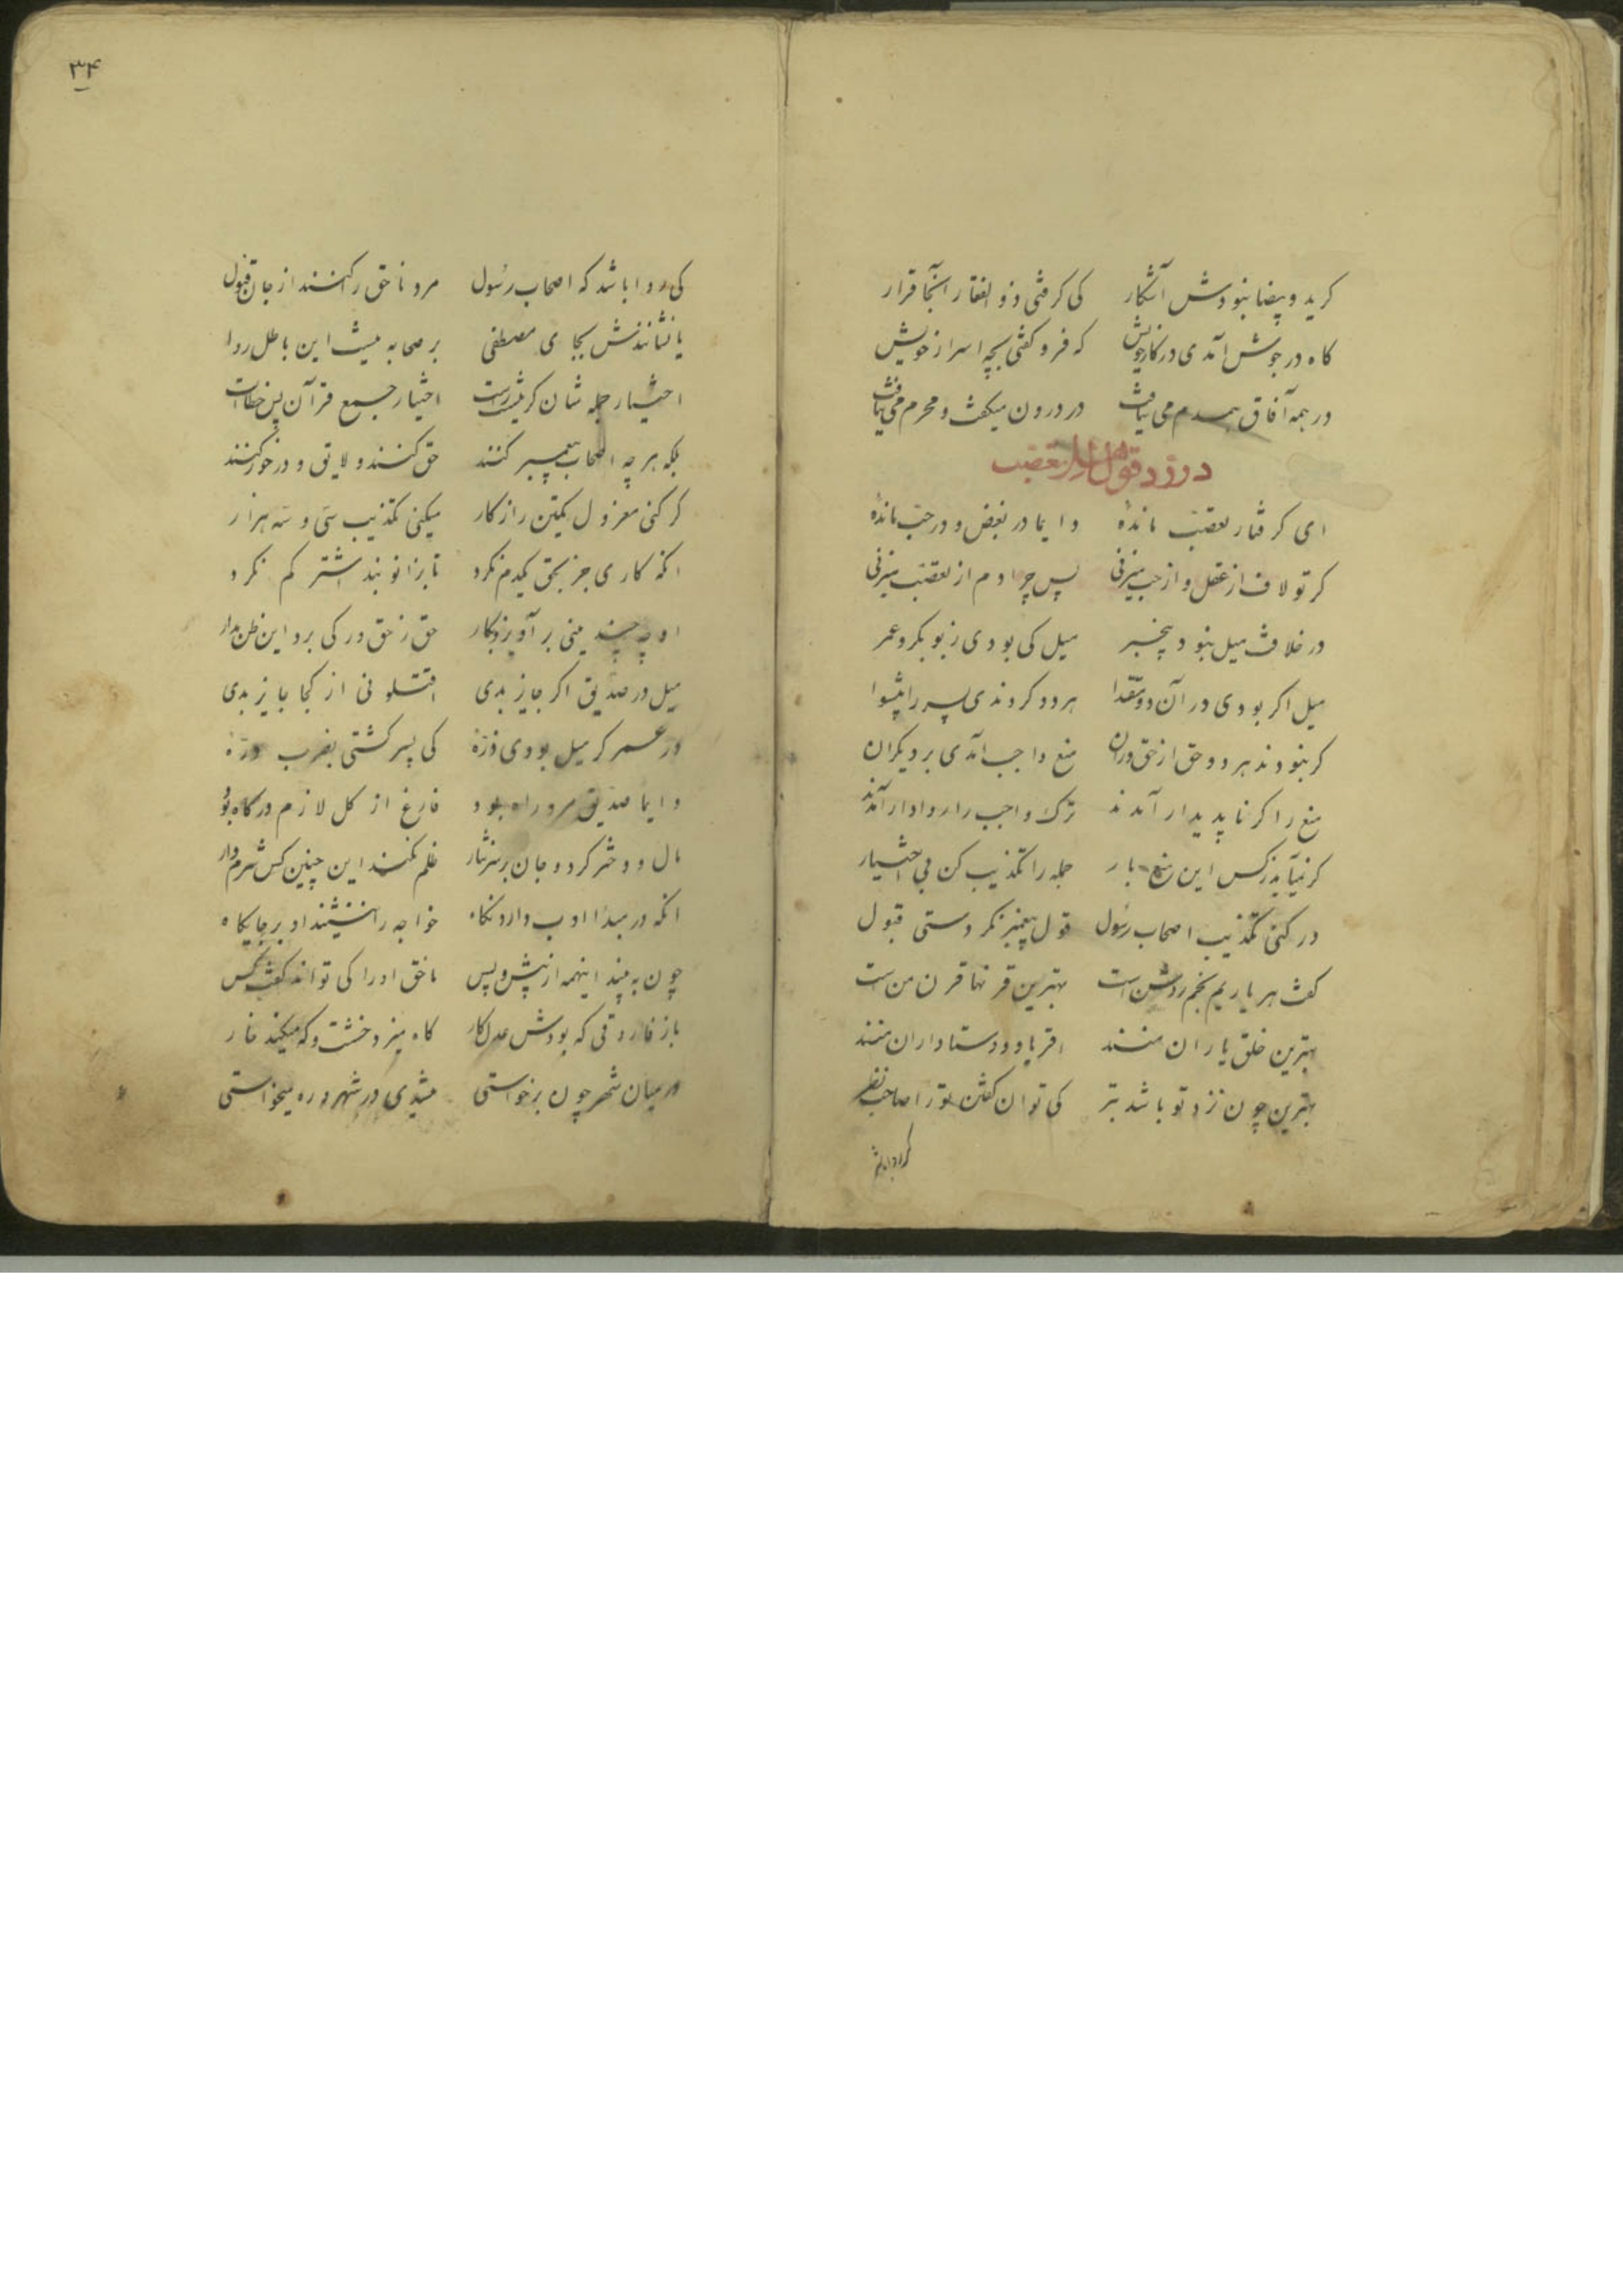 کر ید و بیضا نبودش آشکار کی کرفتی ذو الفقار آنجا قرار
کاه در جوش آمدی در کار خویش که فرو کفتی بچه اسرار خویش
در همه آفاق همدم می نیافت در درون میکشت و محرم می نیافت
در رد قول اهل تعصب
ای کرفتار تعصب مانده دایما در بغض و در حب مانده
کر تو لاف از عقل و از حب میزنی پس چرا دم از تعصب میزنی
در خلافت میل نبود بیخبر میل کی بودی ز بوبکر و عمر
میل اکر بودی در آن دو مقتدا هر دو کردندی پسر را پیشوا
کر نبودند هر دو حق از حق وران منع واجب آمدی بر دیکران
منع را کر ناپدیدار آمدند ترک واجب را روادار آمدند
کر نمیآید ز کس این منع بار جمله را تکذیب کن بی اختیار
در کنی تکذیب اصحاب رسول قول پیغمبر نکردستی قبول
کفت هر یاریم نجم روشن است بهترین قرنها قرن من ست
بهترین خلق یاران منند اقربا و دوستاداران منند
بهترین چون نزد تو باشد بتر کی توان کفتن تو را صاحب نظر
کی روا باشد که
۳۴
کی روا باشد که اصحاب رسول مرد ناحق را کنند از جان قبول
یا نشانندش بجای مصطفی بر صحابه نیست این باطل روا
اختیار جمله شان کر نیست راست اختیار جمع قرآن پس خطاست
بلکه هر چه اصحاب پیغمبر کنند حق کنند و لایق و در خور کنند
کر کنی معزول یکتن را ز کار میکنی تکذیب سی و سه هزار
انکه کاری جز بحق یکدم نکرد تا بزانو بند اشتر کم نکرد
او چه چند مینی بر آویزد بکار حق ز حق ور کی برد این ظن مدار
میل در صدیق اکر جایز بدی اقتلونی از کجا جایز بدی
در عمر کر میل بودی ذره کی پسر کشتی بضرب دره
دایما صدیق مرد راه بود فارغ از کل لازم درکاه بود
مال و دختر کرد و جان بر سر نثار ظلم نکند این چنین کس شرم دار
انکه در مبدا ادب دارد نکاه خواجه را ننشیند او بر جایکاه
چون به بیند اینهمه از پیش و پس ناحق او را کی تواند کفت کس
باز فاروقی که بودش عدل کار کاه میزد خشت و که میکند خار
در میان شهر چون برخواستی میشدی در شهر و ره میخواستی